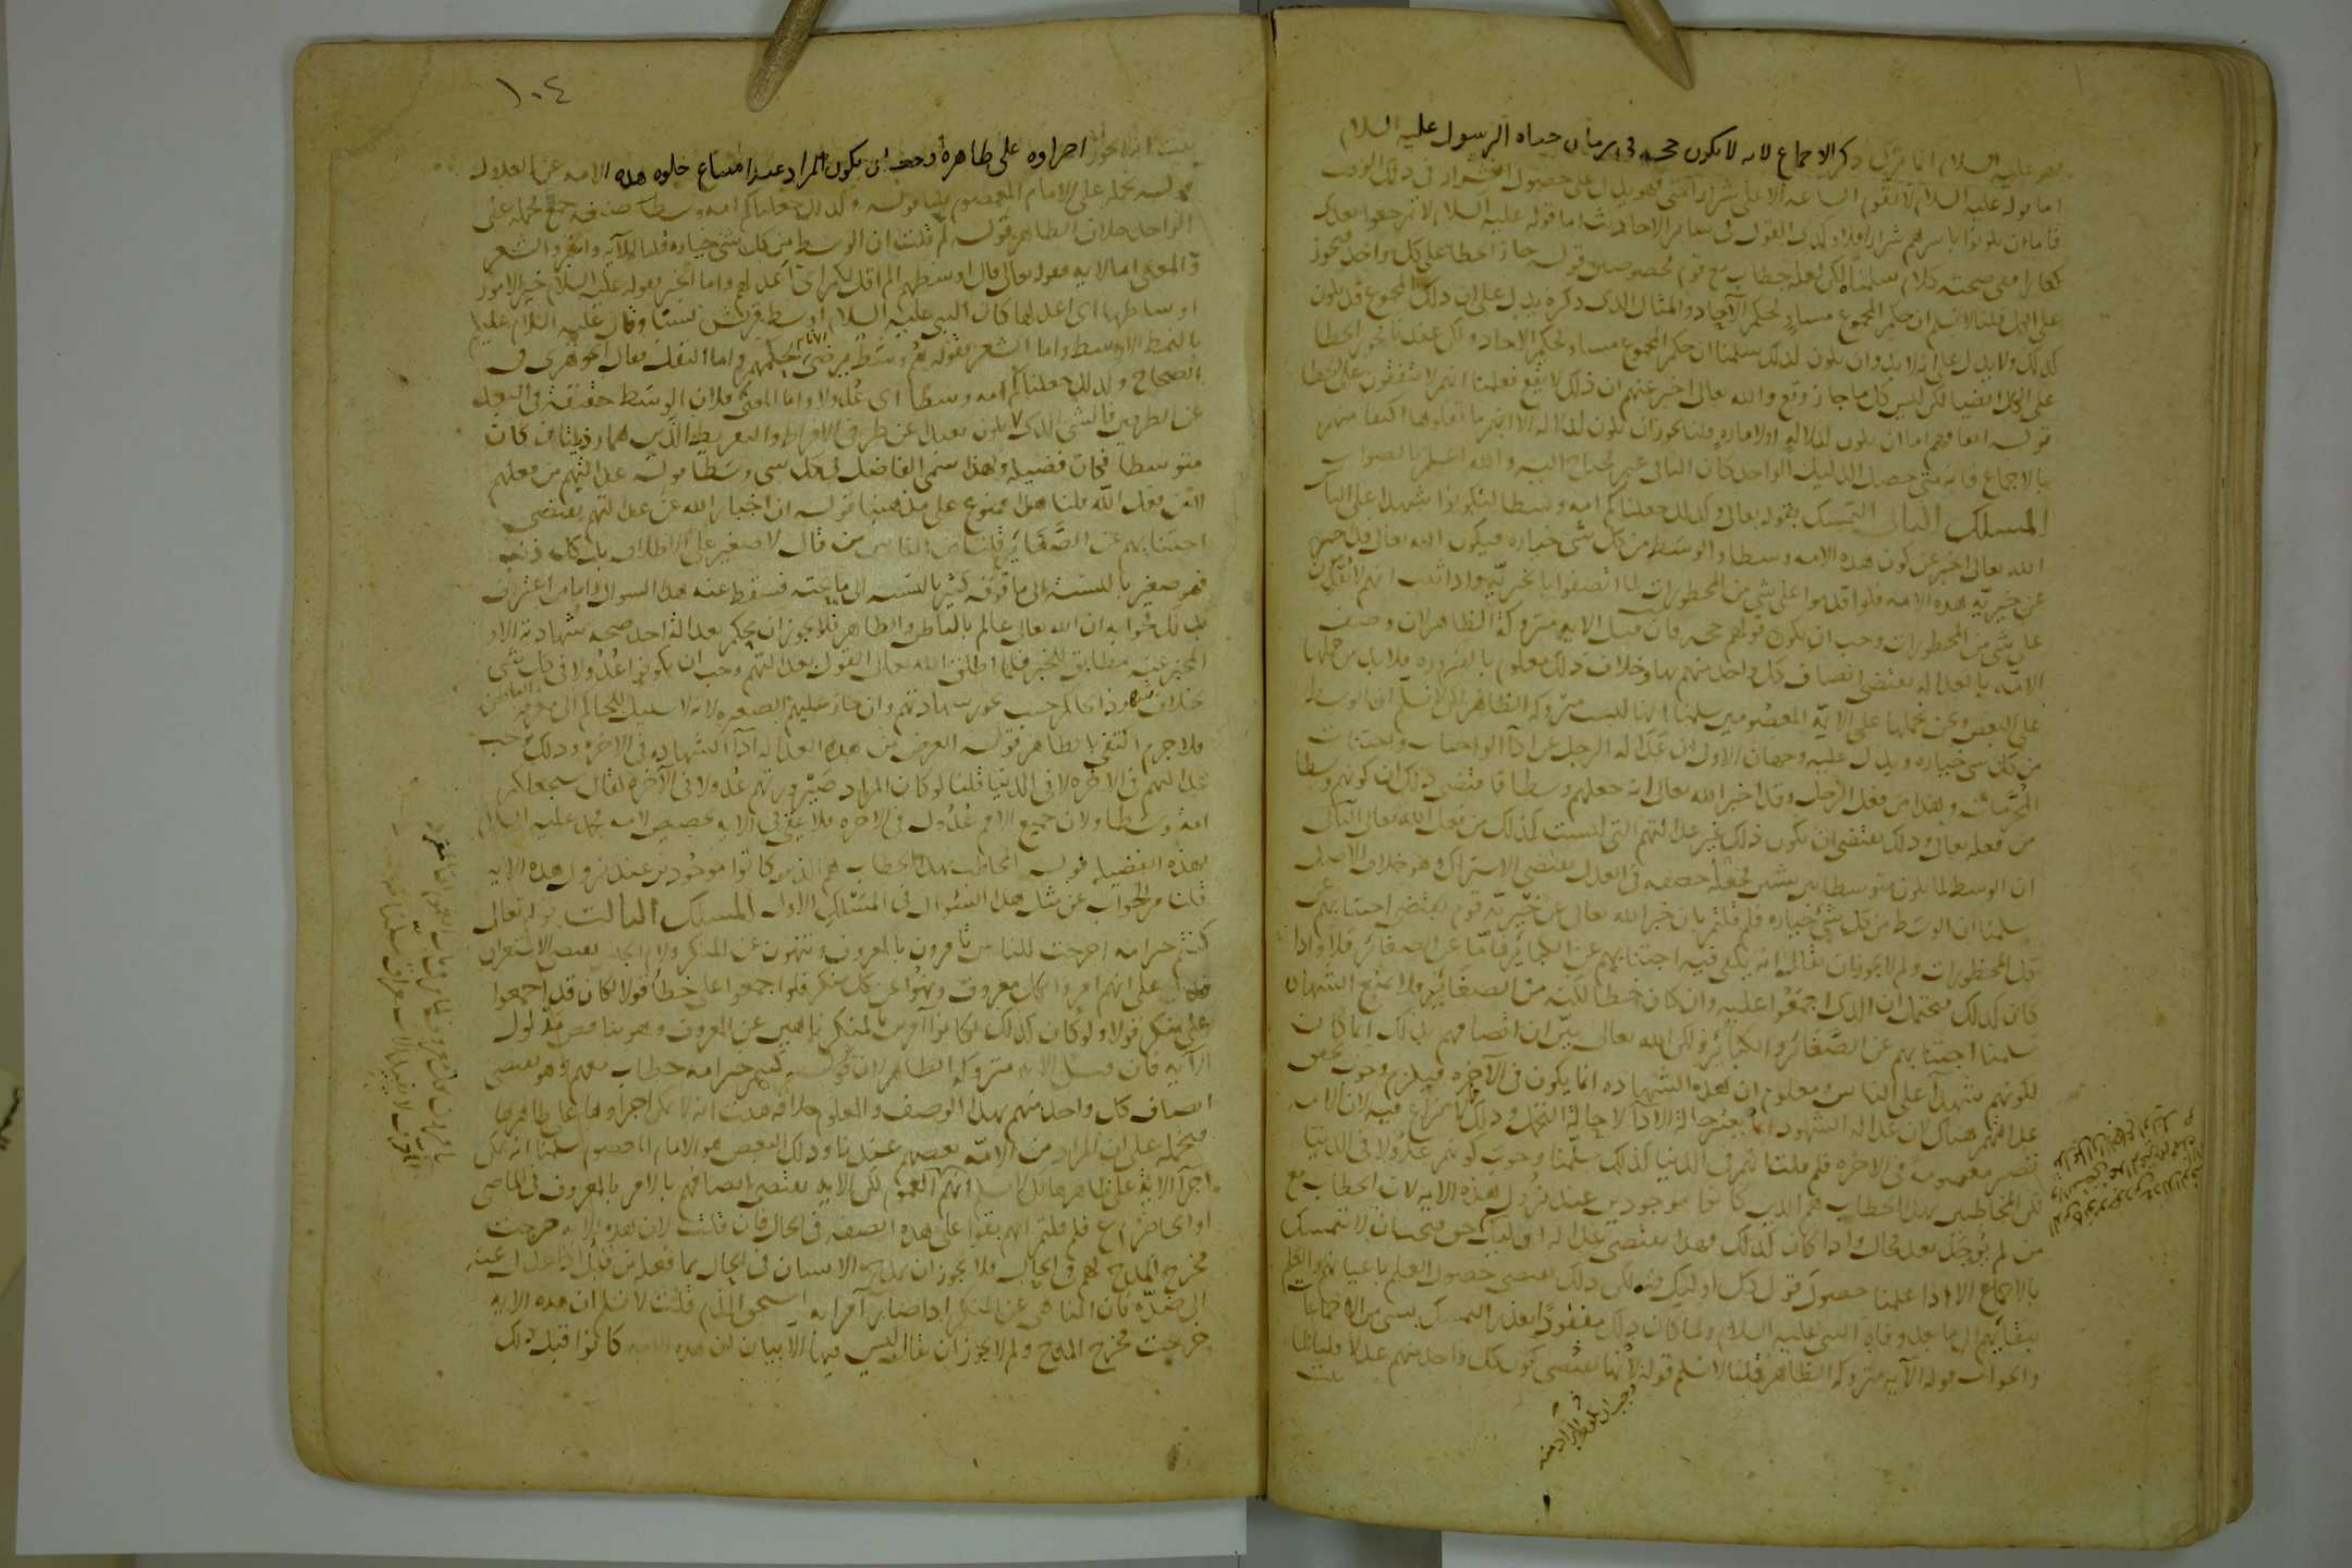 عليه السلام انما ترك ذكر الاجماع لانه لا يكون حجه في زمان حياه الرسول عليه السلام
اما قوله عليه السلام لا تقوم الساعه الا على شرار امتى فهو يدل على حصول الشرار في ذلك الوقت
فاما ان يكونوا باسرهم شرارا فلا وكذى القول في سائر الاحاديث اما قوله عليه السلام لا ترجعوا بعدى
كفارا صحته كلام سلمناه لكن لعله خطاب مع قوم مخصوصين قوله جاز الخطا على كل واحد فيجوز
على الكل قلنا لا نسلم ان حكم المجموع مساو لحكم الآحاد والمثال الذى ذكره يدل على ان ذلك المجموع قد يكون
كذلك ولا يدل على انه لا بد وان يكون كذلك سلمنا ان حكم المجموع مساو لحكم الاحاد ولكن نجوز الخطا
على الكل ايضا لكن ليس كل ما جاز وقع والله تعالى اخبر عنهم ان ذلك لا يقع فعلمنا انهم لا يتفقون على الخطا
قوله اتفاقهم اما ان يكون لدلاله او لاماره قلنا يجوز ان يكون لدلاله الا انهم ما نقلوها اكتفا منهم
بالاجماع فانه متى حصل الدليل الواحد كان الثانى غير محتاج اليه والله اعلم بالصواب
المسلك الثانى التمسك بقوله تعالى وكذلك جعلناكم امه وسطا لتكونوا شهدا على الناس
الله تعالى اخبر عن كون هذه الامه وسطا والوسط من كل شى خياره فيكون الله تعالى قد اخبر
عن خيريه هذه الامه فلو اقدموا على شى من المحظورات لما اتصفوا بالخيريه واذا ثبت انهم لا يقدمون
على شى من المحظورات وجب ان يكون قولهم حجه فان قيل الايه متروكة الظاهر لان وصف
الامه بالعداله يقتضى اتصاف كل واحد منهم بها وخلاف ذلك معلوم بالضروره فلا بد من حملها
على البعض ونحن نحملها على الايمه المعصومين سلمنا انها ليست متروكه الظاهر لكن لا نسلم ان الوسط
من كل شى خياره ويدل عليه وجهان الاول ان عداله الرجل عن ادا الواجبات واجتناب
المحرمات وهذا من فعل الرجل وقد اخبر الله تعالى انه جعلهم وسطا فاقتضى ذلك ان كونهم وسطا
من فعله تعالى وذلك يقتضى ان يكون ذلك غير عدالتهم التى ليست كذلك من فعل الله تعالى الثانى
ان الوسط لما يكون متوسطا بين شيين فجعله حقيقه في العدل يقتضى الاشتراك وهو خلاف الاصل
سلمنا ان الوسط من كل شى خياره فلم قلتم بان خبر الله تعالى عن خيريه قوم يقتضى اجتنابهم عن
كل المحظورات ولم لا يجوز ان يقال انه يكفى فيه اجتنابهم عن الكبائر فاما عن الصغائر فلا واذا
كان كذلك فيحتمل ان الذى اجمعوا عليه وان كان خطا لكنه من الصغائر فلا يمنع الشهاده
سلمنا اجتنابهم عن الصغائر والكبائر ولكن الله تعالى بين ان اتصافهم بذلك انما كان
لكونهم شهدا على الناس ومعلوم ان هذه الشهاده انما يكون في الآخره فيلزم وجوب تحقق
عدالتهم هناك لان عداله الشهود انما يعتبر حالة الادا لا حالة التحمل وذلك مما لا نزاع فيه لان الامه
تصير معصومه في الاخره فلم قلتم انهم في الدنيا كذلك سلمنا وجوب كونهم عدولا في الدنيا
لكن المخاطبين بهذا الخطاب هم الذين كانوا موجودين عند نزول هذه الايه لان الخطاب مع
من لم يوجد بعد محال واذا كان كذلك فهذا يقتضى عداله اوليك فيجب ان لا نتمسك
بالاجماع الا اذا علمنا حصول قول كل اوليك فيه لكن ذلك يقتضى حصول العلم باعيانهم والعلم
ببقائهم الى ما بعد وفاة النبى عليه السلام ولما كان ذلك مفقودا تعذر التمسك بشى من الاجماعات
والجواب قوله الآيه متروكه الظاهر قلنا لا نسلم قوله لانها يقتضى كون كل واحد منهم عدلا قلنا لما
ثبت
١٠٤
ثبت انه لا يجوز اجراوه على ظاهره وجب ان يكون المراد عنه امتناع خلوه هذه الامه عن العدول
قوله نحمله على الامام المعصوم قلنا قوله وكذلك جعلناكم امه وسطا صيغه جمع فحمله على
الواحد خلاف الظاهر قوله لم قلت ان الوسط من كل شى خياره قلنا للآيه والخبر والشعر
والمعنى اما الايه فقوله تعالى قال اوسطهم الم اقل لكم اى اعدلهم واما الخبر فقوله عليه السلام خير الامور
اوساطها اى اعدلها كان النبى عليه السلام اوسط قريش نسبا وقال عليه السلام عليكم
بالنمط الاوسط واما الشعر فقوله هم وسط يرضى الانام بحكمهم واما النقل فقال الجوهرى في
الصحاح وكذلك جعلناكم امه وسطا اى عدولا واما المعنى فلان الوسط حقيقة في البعد
عن الطرفين فالشى الذى يكون بعيدا عن طرفى الافراط والتفريط الذين هما رذيلتان كان
متوسطا فكان فضيله ولهذا سمى الفاضل في كل شى وسطا قوله عدالتهم من فعلهم
لا من فعل الله قلنا هذا ممنوع على مذهبنا قوله ان اخبار الله عن عدالتهم يقتضى
اجتنابهم عن الصغائر قلنا من الناس من قال لا صغير على الاطلاق بل كل ذنب
فهو صغير بالنسبة الى ما فوقه كبير بالنسبه الى ما تحته فسقط عنه هذا السوال واما من اعترف
بذلك فجوابه ان الله تعالى عالم بالباطن والظاهر فلا يجوز ان يحكم بعداله احد صحه شهادته الا و
المخبر عنه مطابق للخبر فلما اطلق الله تعالى القول بعدالتهم وجب ان يكونوا عدولا في كل شى
بخلاف شهود الحاكم حيث يجوز شهادتهم وان جاز عليهم الصغيره لانه لا سبيل للحاكم الى معرفه الباطن
فلا جرم اكتفى بالظاهر قوله الغرض من هذه العداله ادآ الشهاده في الاخره وذلك يوجب
عدالتهم في الاخره لا في الدنيا قلنا لو كان المراد صيرورتهم عدولا في الآخره لقال سنجعلكم
امه وسطا ولان جميع الامم عدول في الاخره فلا يبقى في الايه تخصيص لامه محمد عليه السلام
بهذه الفضيله قوله المخاطب بهذا الخطاب هم الذين كانوا موجودين عند نزول هذه الايه
قلنا مر الجواب عن مثل هذا السؤال في المسلك الاول المسلك الثالث قوله تعالى
كنتم خير امه اخرجت للناس تامرون بالمعروف وتنهون عن المنكر ولام الجنس يقتضى الاستغراق
فدل على انهم امروا بكل معروف ونهوا عن كل منكر فلو اجمعوا على خطا قولا لكان قد اجمعوا
على منكر قولا ولو كان كذلك لكانوا آمرين بالمنكر ناهين عن المعروف وهو يناقض مدلول
الآيه فان قيل الايه متروكه الظاهر لان قوله كنتم خير امه خطاب معهم وهو يقتضى
اتصاف كل واحد منهم بهذا الوصف والمعلوم خلافه فثبت انه لا يمكن اجراوها على ظاهرها
فنحمله على ان المراد من الامه بعضهم عندنا وذلك البعض هو الامام المعصوم سلمنا انه يمكن
اجرآ الايه على ظاهرها لكن لا نسلم انهم العموم لكن الايه يقتضى اتصافهم بالامر بالمعروف في الماضى
او الحاضر ع فلم قلتم انهم بقوا على هذه الصفه في الحال فان قلت لان هذه الايه خرجت
مخرج المدح لهم في الحال فلا يجوز ان يمدح الانسان في الحال بما فعله من قبل اذا عدل عنه
الى ضده فان الناهى عن المنكر اذا صار آمرا به استحق الذم قلت لا نسلم ان هذه الايه
خرجت مخرج المدح ولم لا يجوز ان يقال ليس فيها الا بيان ان هذه الامه كانوا قبل ذلك